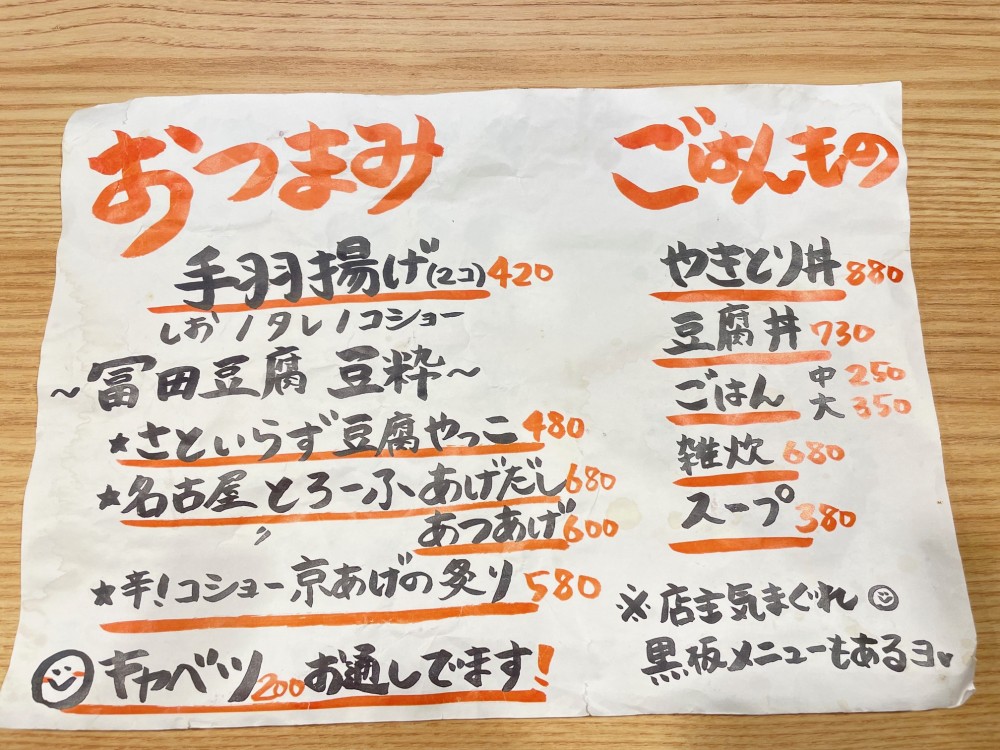 おつまみ
手羽揚げ(2コ) 420
しお/タレ/コショー
~冨田豆腐 豆粋~
★さといらず豆腐やっこ 480
★名古屋とろーふ あげだし 680
〃 あつあげ 600
★辛!コショー京あげの炙り 580
キャベツ200お通しでます!
ごはんもの
やきとり丼 880
豆腐丼 730
ごはん 中 250
大 350
雑炊 680
スープ 380
※店主気まぐれ
黒板メニューもあるヨ